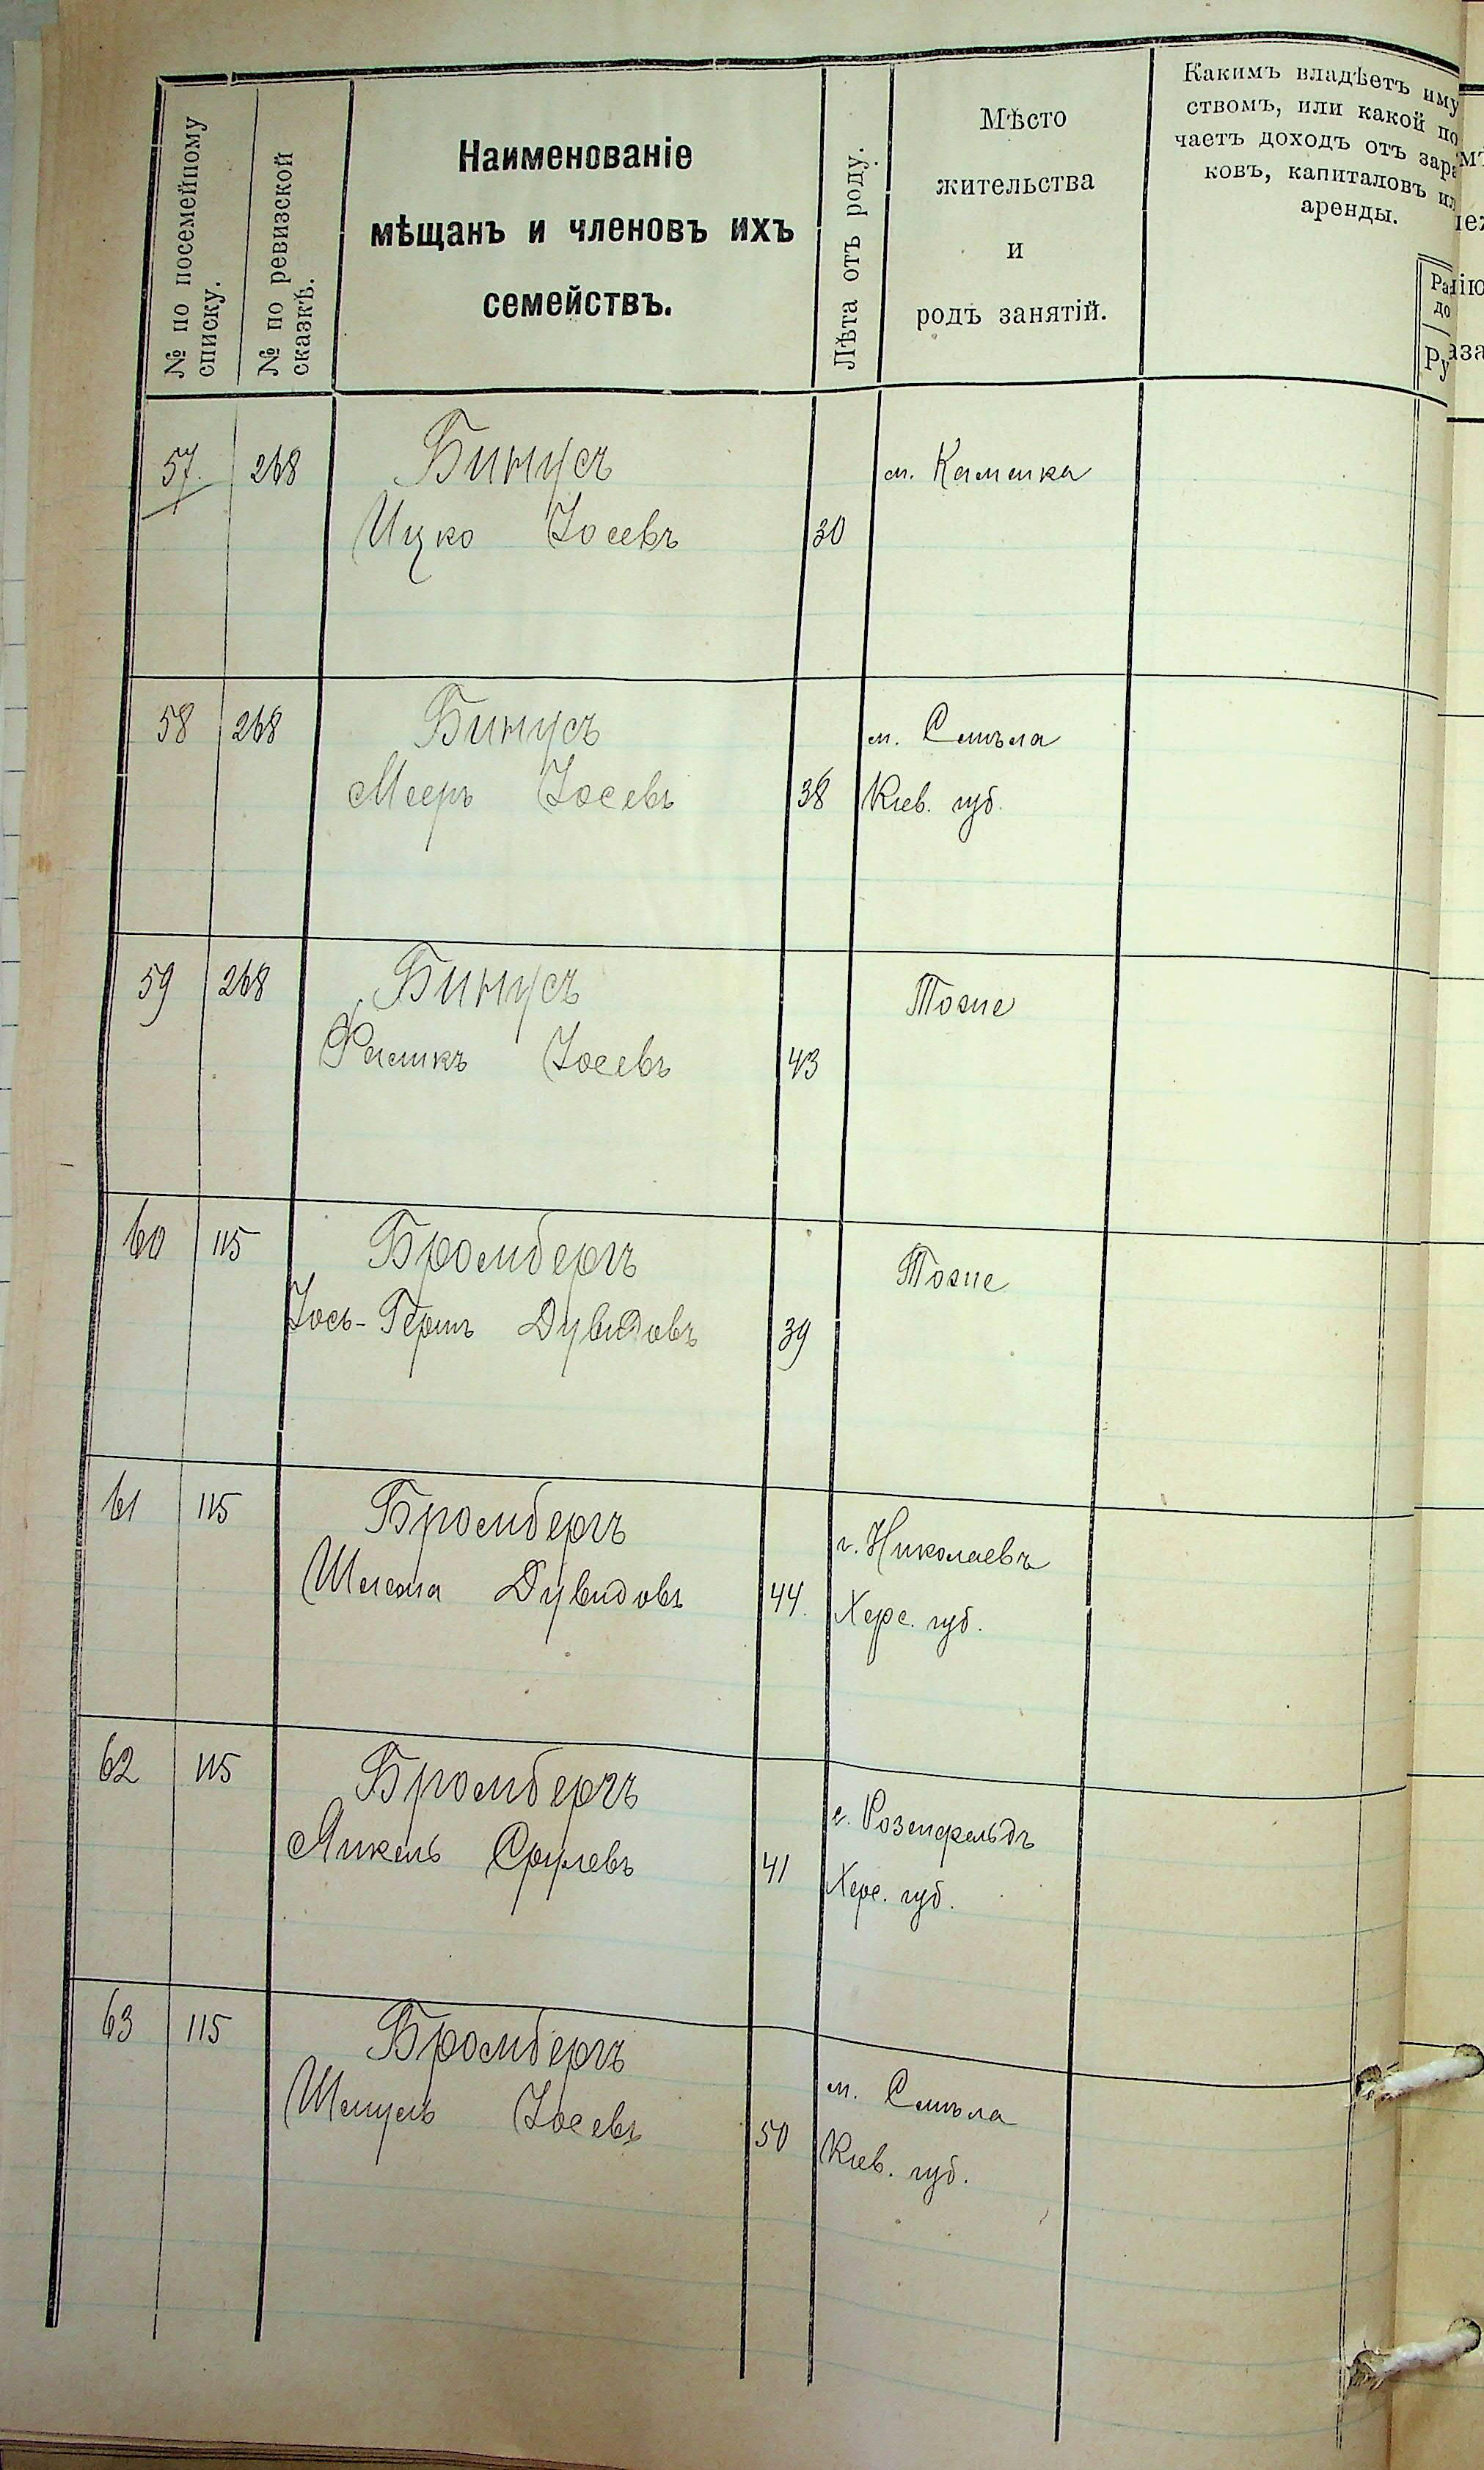 № по посемейному
списку.
№ по ревизской
сказкѣ.
Наименованіе
мѣщанъ и членовъ ихъ
семействъ.
Лѣта отъ роду.
Мѣсто
жительства
и
родъ занятій.
Какимъ владѣетъ иму
ствомъ, или какой по
чаетъ доходъ отъ зара
ковъ, капиталовъ ил
аренды.
Ру
57. 268 Бинусъ м. Каменка
Ицко Іосевъ 30
58 268 Бинусъ м. Смѣла
Мееръ Іосевъ 38 Кіев. губ.
59 268 Бинусъ Тоже
Іосевъ 43
60 115 Бромбергъ Тоже
Іось-Гершъ Дувидовъ 39
61 115 Бромбергъ г. Николаевъ
Дувидовъ 44. Херс. губ.
62 115 Бромбергъ с. Розенфельдъ
Янкель Срулевъ 41 Херс. губ.
63 115 Бромбергъ м. Смѣла
Шмуль Іосевъ 50 Кіев. губ.